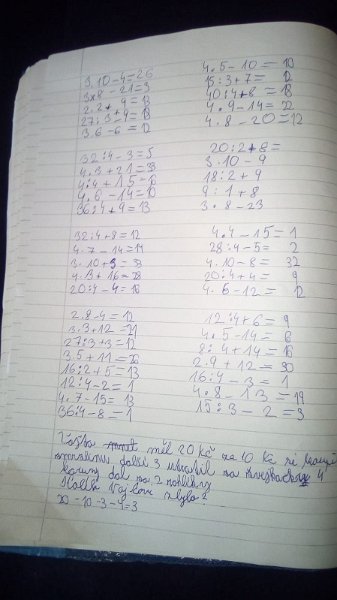 3.10-4=26
3x8-21=3
2.2+9=13
27:3+9=18
3.6-6=12
4.5-10=10
15:3+7=12
40:4+8=18
4.9-14=22
4.8-20=12
32:4-3=5
4.3+21=33
4:4+15=10
4.6-14=10
36:4+9=13
20:2+8=
3.10-9
18:2+9
9:1+8
3.8-23
32:4+8=12
4.7-14=14
3.10+3=33
4.3+16=28
20:4-4=16
4.4-15=1
28:4-5=2
4.10-8=32
20:4+4=9
4.6-12=12
2.8-4=12
3.3+12=21
27:3+3=12
3.5+11=26
16:2+5=13
12:4-2=1
4.7-15=13
36:4-8=1
12:4+6=9
4.5-14=6
8:4+14=16
2.9+12=30
16:4-3=1
4.8-13=19
15:3-2=3
měl 20 Kč za 10 Kč si koupil
zmrzlinu další 3 utratil za 4
koruny dal za 2 rohlíky
Kolik Vojtovi zbylo?
20-10-3-4=3